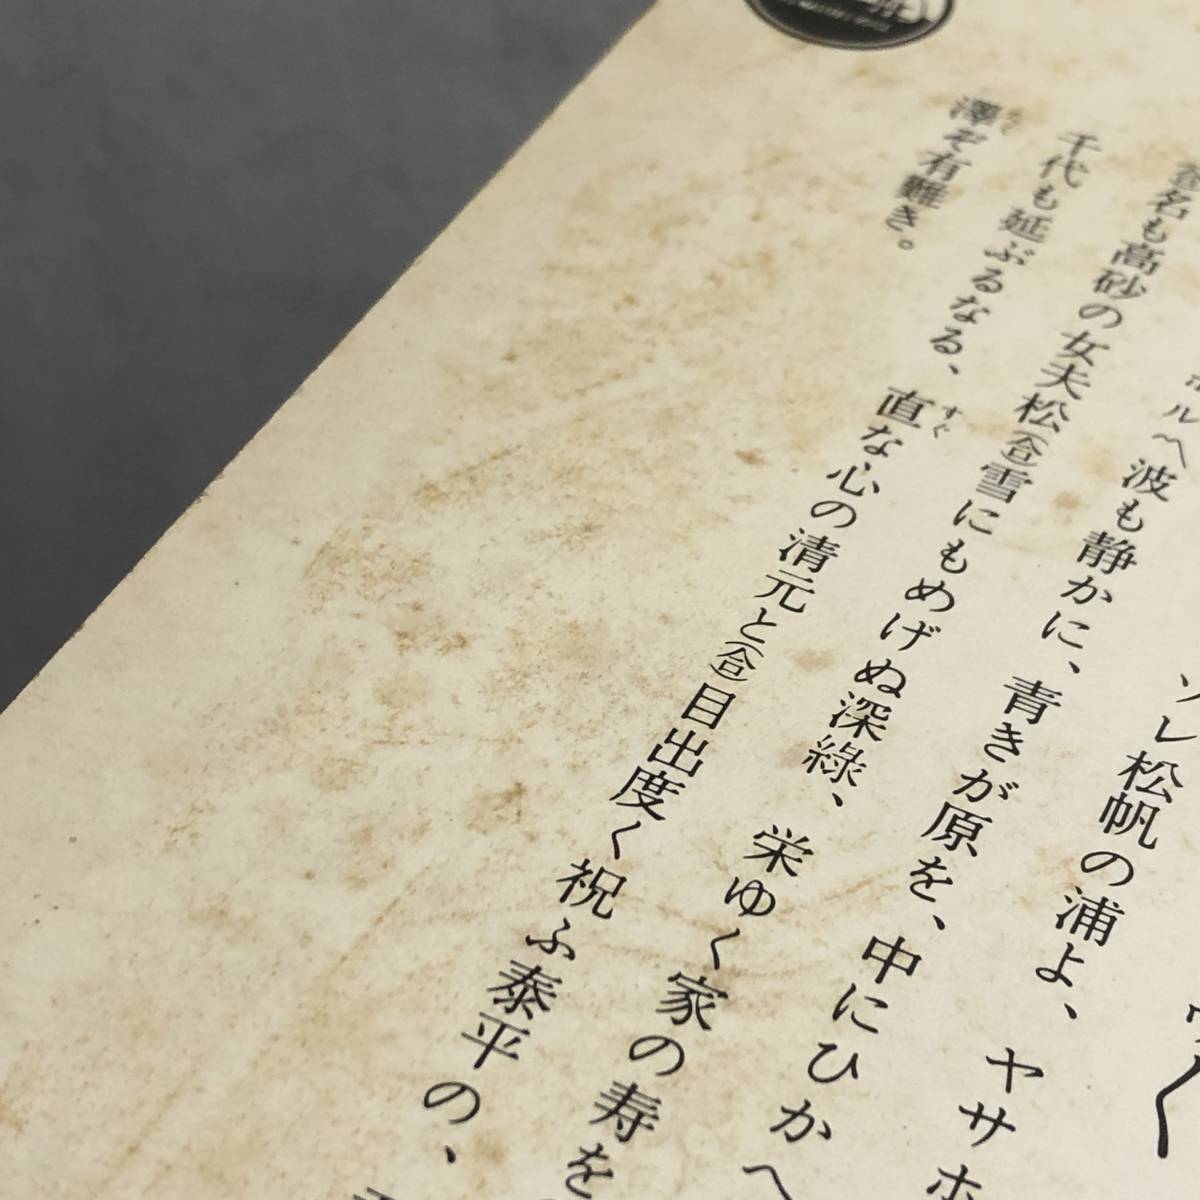 ソレ松帆の浦よ、ヤサホ
ルヘ波も静かに、青きが原を、中にひかへ
名も高砂の女夫松(合)雪にもめげぬ深緑、栄ゆく家の寿を
千代も延ぶるなる、直な心の清元と(合)目出度く祝ふ泰平の、
すぐ
澤ぞ有難き。